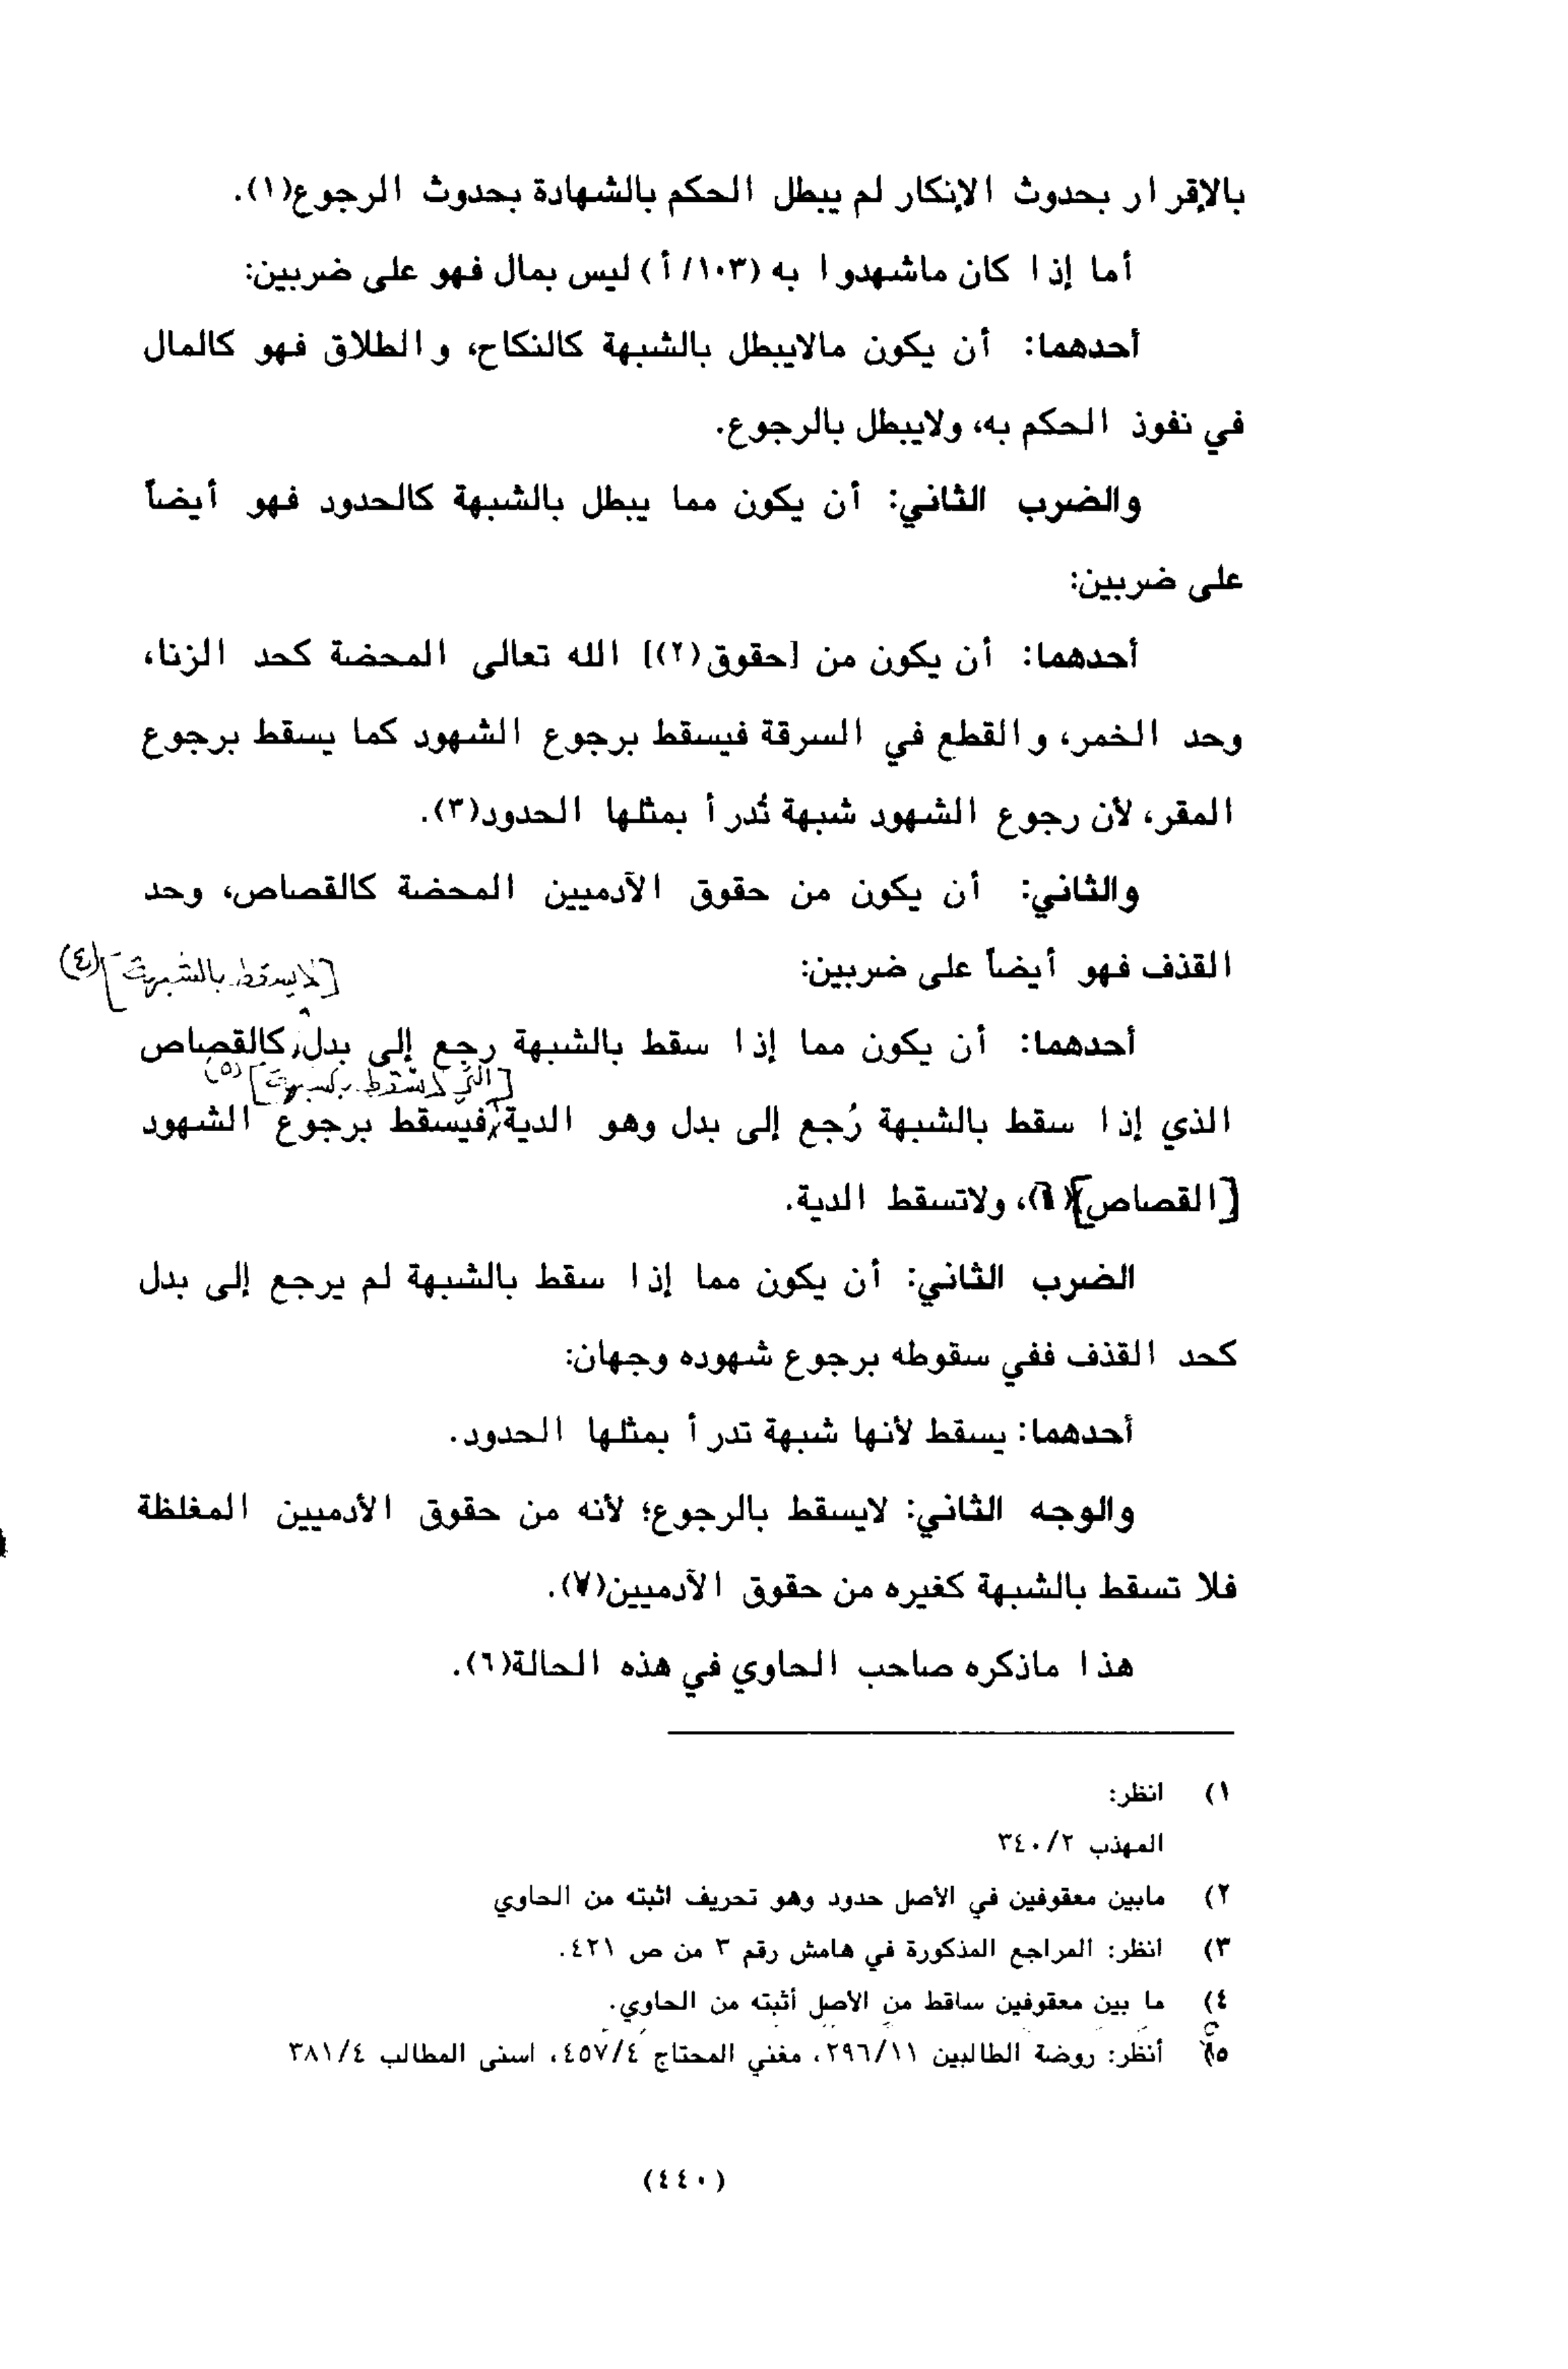 بالإقرار بحدوث الإنكار لم يبطل الحكم بالشهادة بحدوث الرجوع(١).
أما إذا كان ماشهدوا به (١٠٣/أ) ليس بمال فهو على ضربين:
أحدهما: أن يكون مالايبطل بالشبهة كالنكاح، والطلاق فهو كالمال
في نفوذ الحكم به، ولايبطل بالرجوع.
والضرب الثاني: أن يكون مما يبطل بالشبهة كالحدود فهو أيضاً
على ضربين:
أحدهما: أن يكون من [حقوق(٢)] الله تعالى المحضة كحد الزنا،
وحد الخمر، والقطع في السرقة فيسقط برجوع الشهود كما يسقط برجوع
المقر، لأن رجوع الشهود شبهة تُدرأ بمثلها الحدود(٣).
والثاني: أن يكون من حقوق الآدميين المحضة كالقصاص، وحد
القذف فهو أيضاً على ضربين:
[لايسقط بالشبهة](٤)
أحدهما: أن يكون مما إذا سقط بالشبهة رجع إلى بدل، كالقصاص
[التي لا تسقط بالشبهة](٥)
الذي إذا سقط بالشبهة رُجع إلى بدل وهو الدية، فيسقط برجوع الشهود
[القصاص](٦)، ولاتسقط الدية.
الضرب الثاني: أن يكون مما إذا سقط بالشبهة لم يرجع إلى بدل
كحد القذف ففي سقوطه برجوع شهوده وجهان:
أحدهما: يسقط لأنها شبهة تدرأ بمثلها الحدود.
والوجه الثاني: لايسقط بالرجوع؛ لأنه من حقوق الأدميين المغلظة
فلا تسقط بالشبهة كغيره من حقوق الآدميين(٧).
هذا ماذكره صاحب الحاوي في هذه الحالة(٦).
١) انظر:
المهذب ٣٤٠/٢
٢) مابين معقوفين في الأصل حدود وهو تحريف اثبته من الحاوي
٣) انظر: المراجع المذكورة في هامش رقم ٣ من ص ٤٢١.
٤) ما بين معقوفين ساقط من الأصل أثبته من الحاوي.
٥) أنظر: روضة الطالبين ٢٩٦/١١، مغني المحتاج ٤٥٧/٤، اسنى المطالب ٣٨١/٤
(٤٤٠)